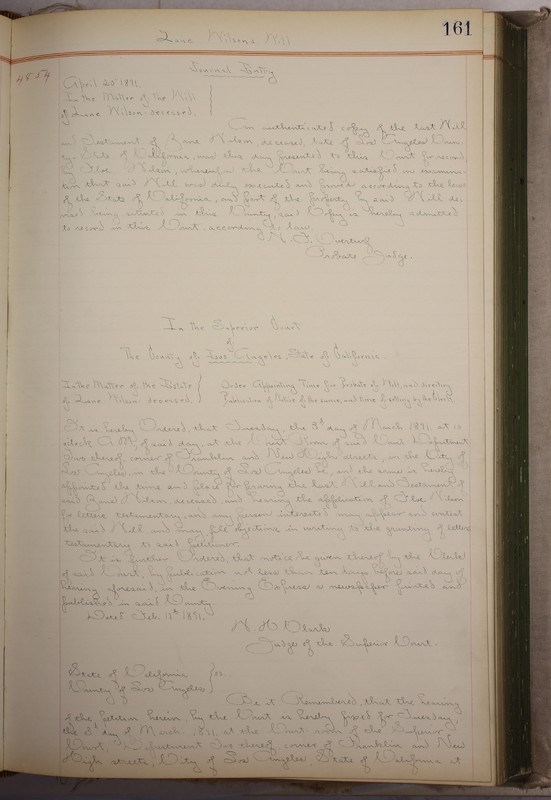 161
Zane Wilson's Will
4854
Journal Entry
April 20th 1891.
In the Matter of the Will
of Zane Wilson deceased.
An authenticated copy of the last Will
and Testament of Zane Wilson, deceased, late of Los Angeles Coun-
ty, State of California, was this day presented to this Court for record
by Wilson, the Court being satisfied on examina-
tion that said Will was duly executed and proved according to the laws
of the State of California, and part of the property by said Will de-
vised being situated in this County, said Copy is hereby admitted
to record in this Court, according to law.
Probate Judge.
In the Superior Court
of
The County of Los Angeles, State of California.
In the Matter of the Estate
of Zane Wilson deceased.
Order Appointing Time for Probate of Will, and directing
Publication of Notice of the same, and time of setting by the Clerk
It is hereby Ordered, that Tuesday, the 3d day of March 1891, at 10
o'clock A.M. of said day, at the Court Room of said Court, Department
Two thereof, corner of Franklin and New High streets, in the City of
Los Angeles, in the County of Los Angeles be, and the same is hereby
appointed the time and place for proving the last Will and Testament of
said Zane Wilson, deceased, and hearing the application of Wilson
for letters testamentary, and any person interested may appear and contest
the said Will and may file objections in writing to the granting of letters
testamentary to said petitioner.
It is further Ordered, that notice be given thereof by the Clerk
of said Court, by publication not less than ten days before said day of
hearing aforesaid, in the Evening Express a newspaper printed and
published in said County.
Dated Feb. 17th 1891.
W. H. Clark
Judge of the Superior Court.
State of California
County of Los Angeles
ss.
Be it Remembered, that the hearing
of the petition herein, by the Court is hereby fixed for Tuesday,
the 3d day of March, 1891, at the Court room of the Superior
Court, Department Two thereof, corner of Franklin and New
High streets, City of Los Angeles, State of California at